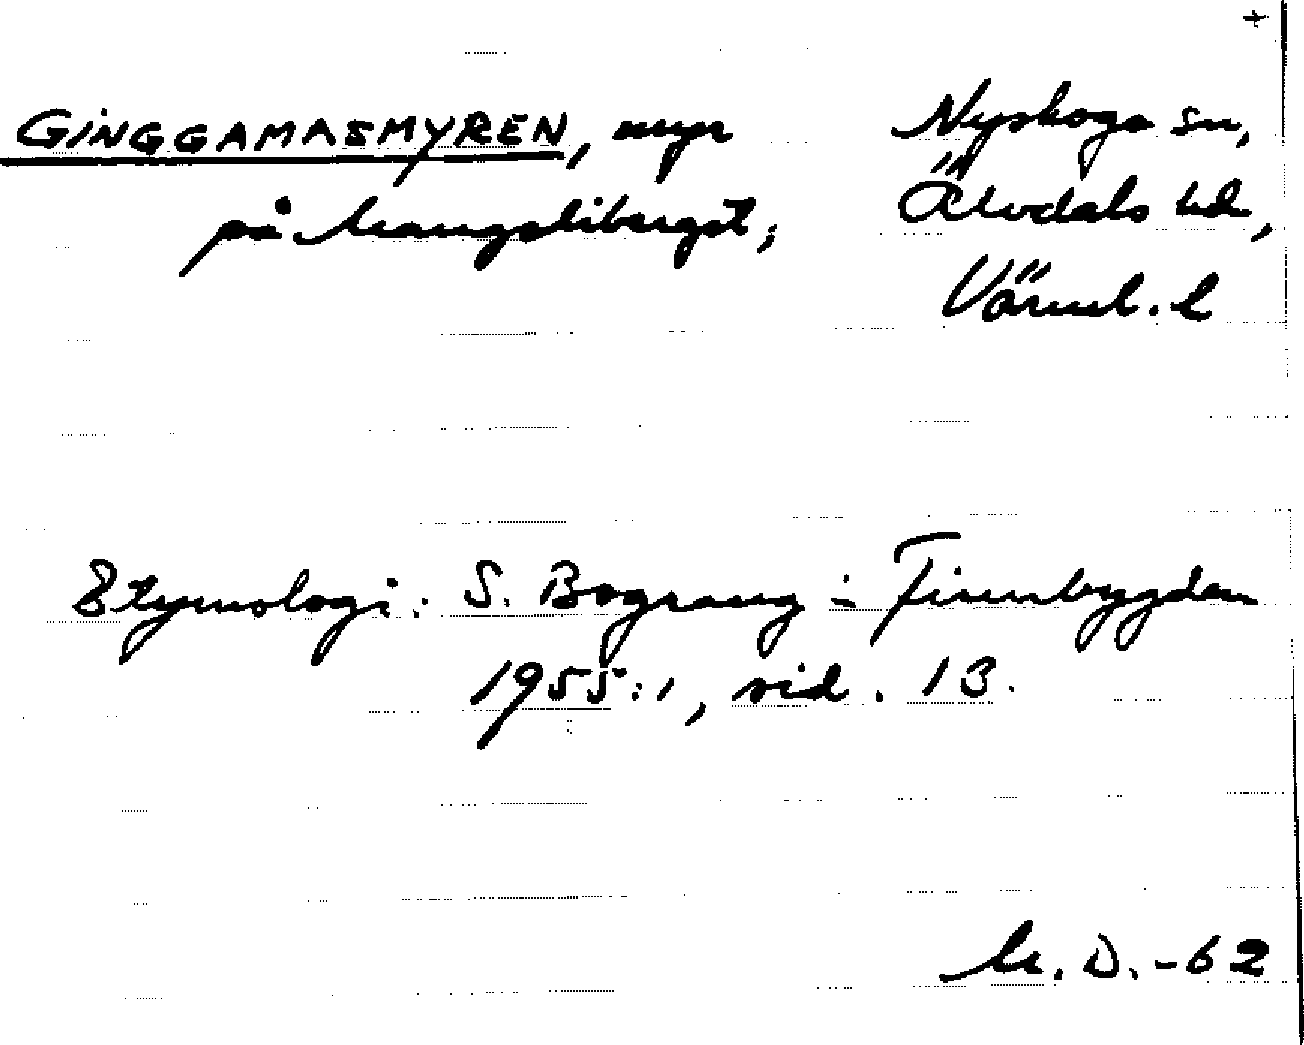 +
GINGGAMASMYREN, myr
på Mangsliberget;
Nyskoga sn,
Älvdals hd,
Värml. l
Etymologi: S. Bograng i Finnbygden
1955:1, sid. 13.
M. D. -62